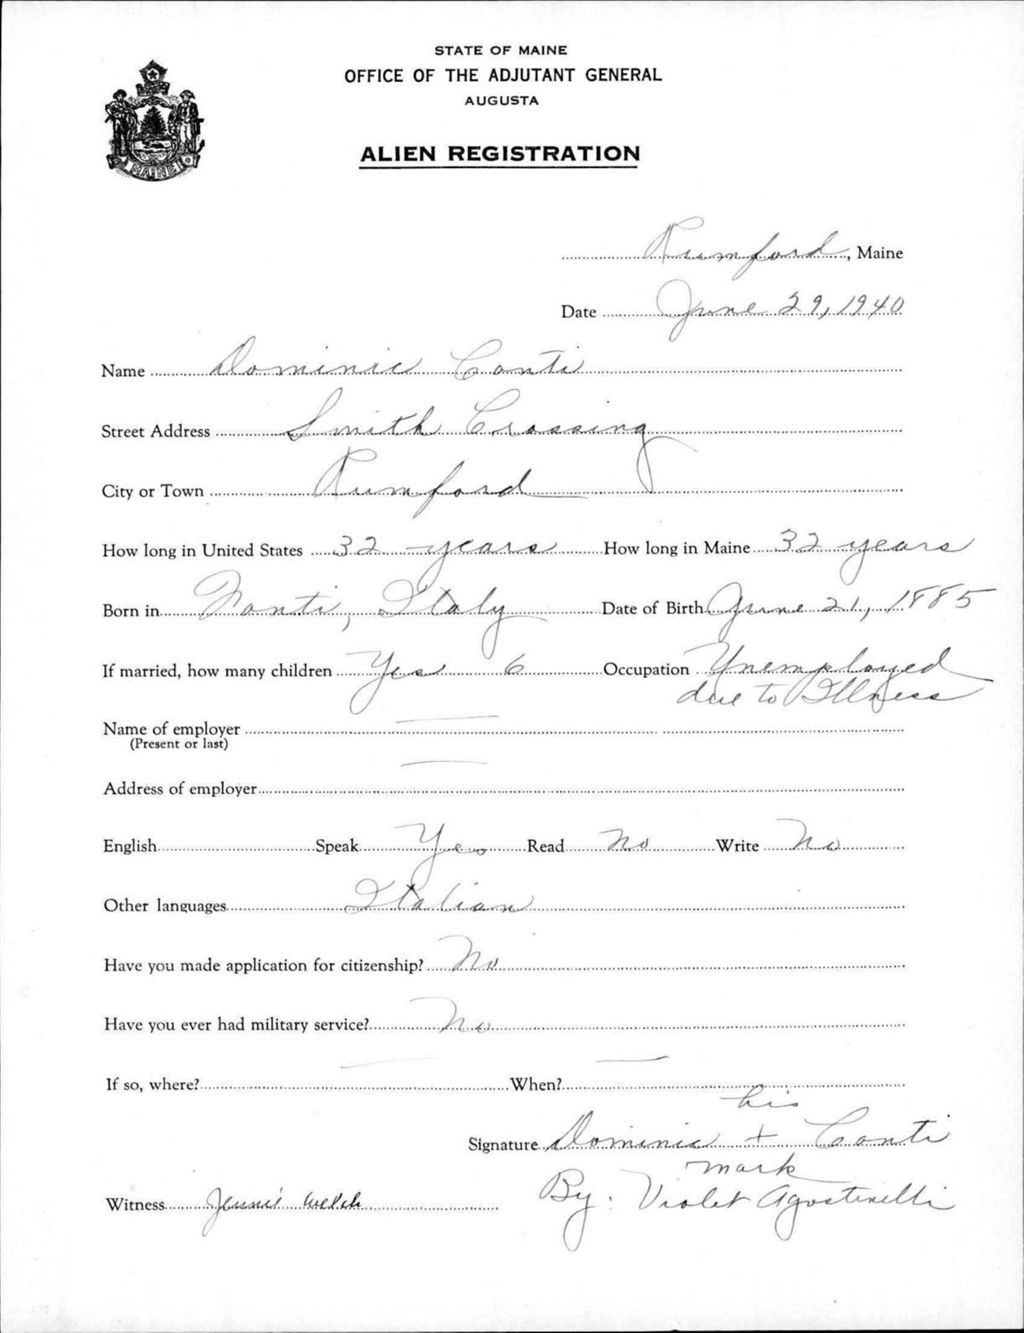 STATE OF MAINE
OFFICE OF THE ADJUTANT GENERAL
AUGUSTA
MAINE
ALIEN REGISTRATION
Rumford, Maine
Date June 29, 1940
Name Dominic Conti
Street Address Smith Crossing
City or Town Rumford
How long in United States 32 years How long in Maine 32 years
Born in , Italy Date of Birth June 21, 1885
If married, how many children Yes 6 Occupation Unemployed
due to Illness
Name of employer —
(Present or last)
Address of employer —
English Speak Yes Read No Write No
Other languages Italian
Have you made application for citizenship? No
Have you ever had military service? No
If so, where? — When? —
his
Signature Dominic + Conti
mark
Witness Jennie Welch By: Violet Agostinelli